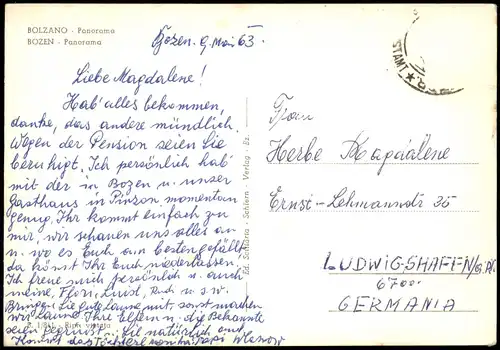 BOLZANO - Panorama
BOZEN - Panorama
Bozen, 9 Mai 63.
Liebe Magdalene!
Hab' alles bekommen,
danke, das andere mündlich.
Wegen der Pension seien Sie
beruhigt. Ich persönlich hab
mit der in Bozen u. unser
Gasthaus in Pinzon momentan
genug. Ihr kommt einfach zu
mir, wir schauen uns alles an
u. wo es Euch am besten gefällt
da könnt Ihr Euch niederlassen.
Ich freue mich persönlich u. auch
meine, Flori, Luist, u. s. w.
Bringen Sie gute Laune mit, sonst machen
wir Laune. Ihre Eltern u. die Bekannte
seien gegrüsst. Sie natürlich auch
Kommt das Töchterl
Frau
Herbe Magdalene
Ernst-Lehmannstr 36
LUDWIGSHAFEN/
6700
GERMANIA
Ed. Schlaria - Schlern - Verlag - Bz.
Rip. vietata
STAMT